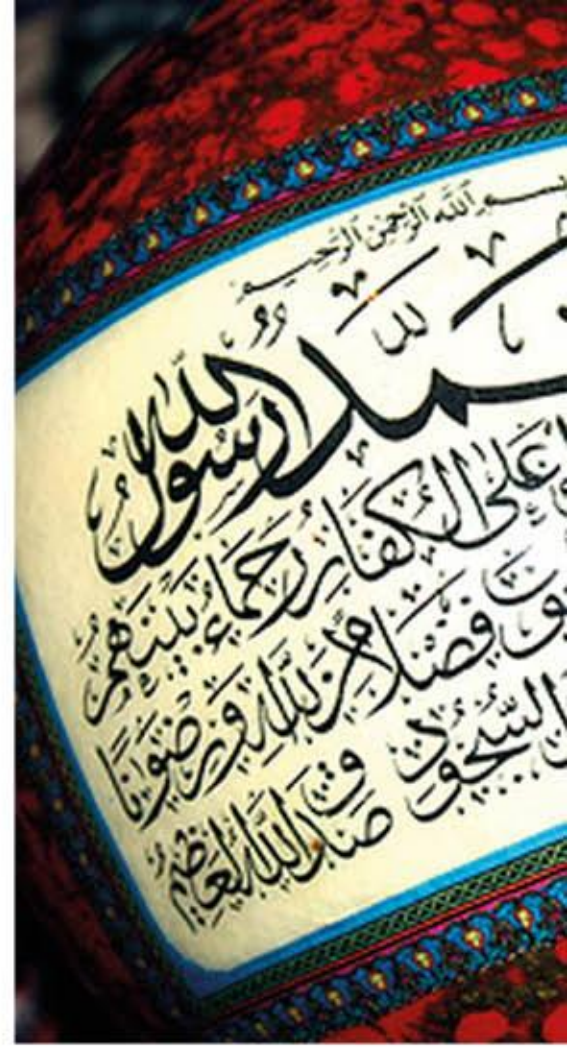 بسم الله الرحمن الرحيم
ـمد رسول الله
على الكفار رحماء بينهم
ـون فضلا من الله ورضوانا
السجود صدق الله العظيم